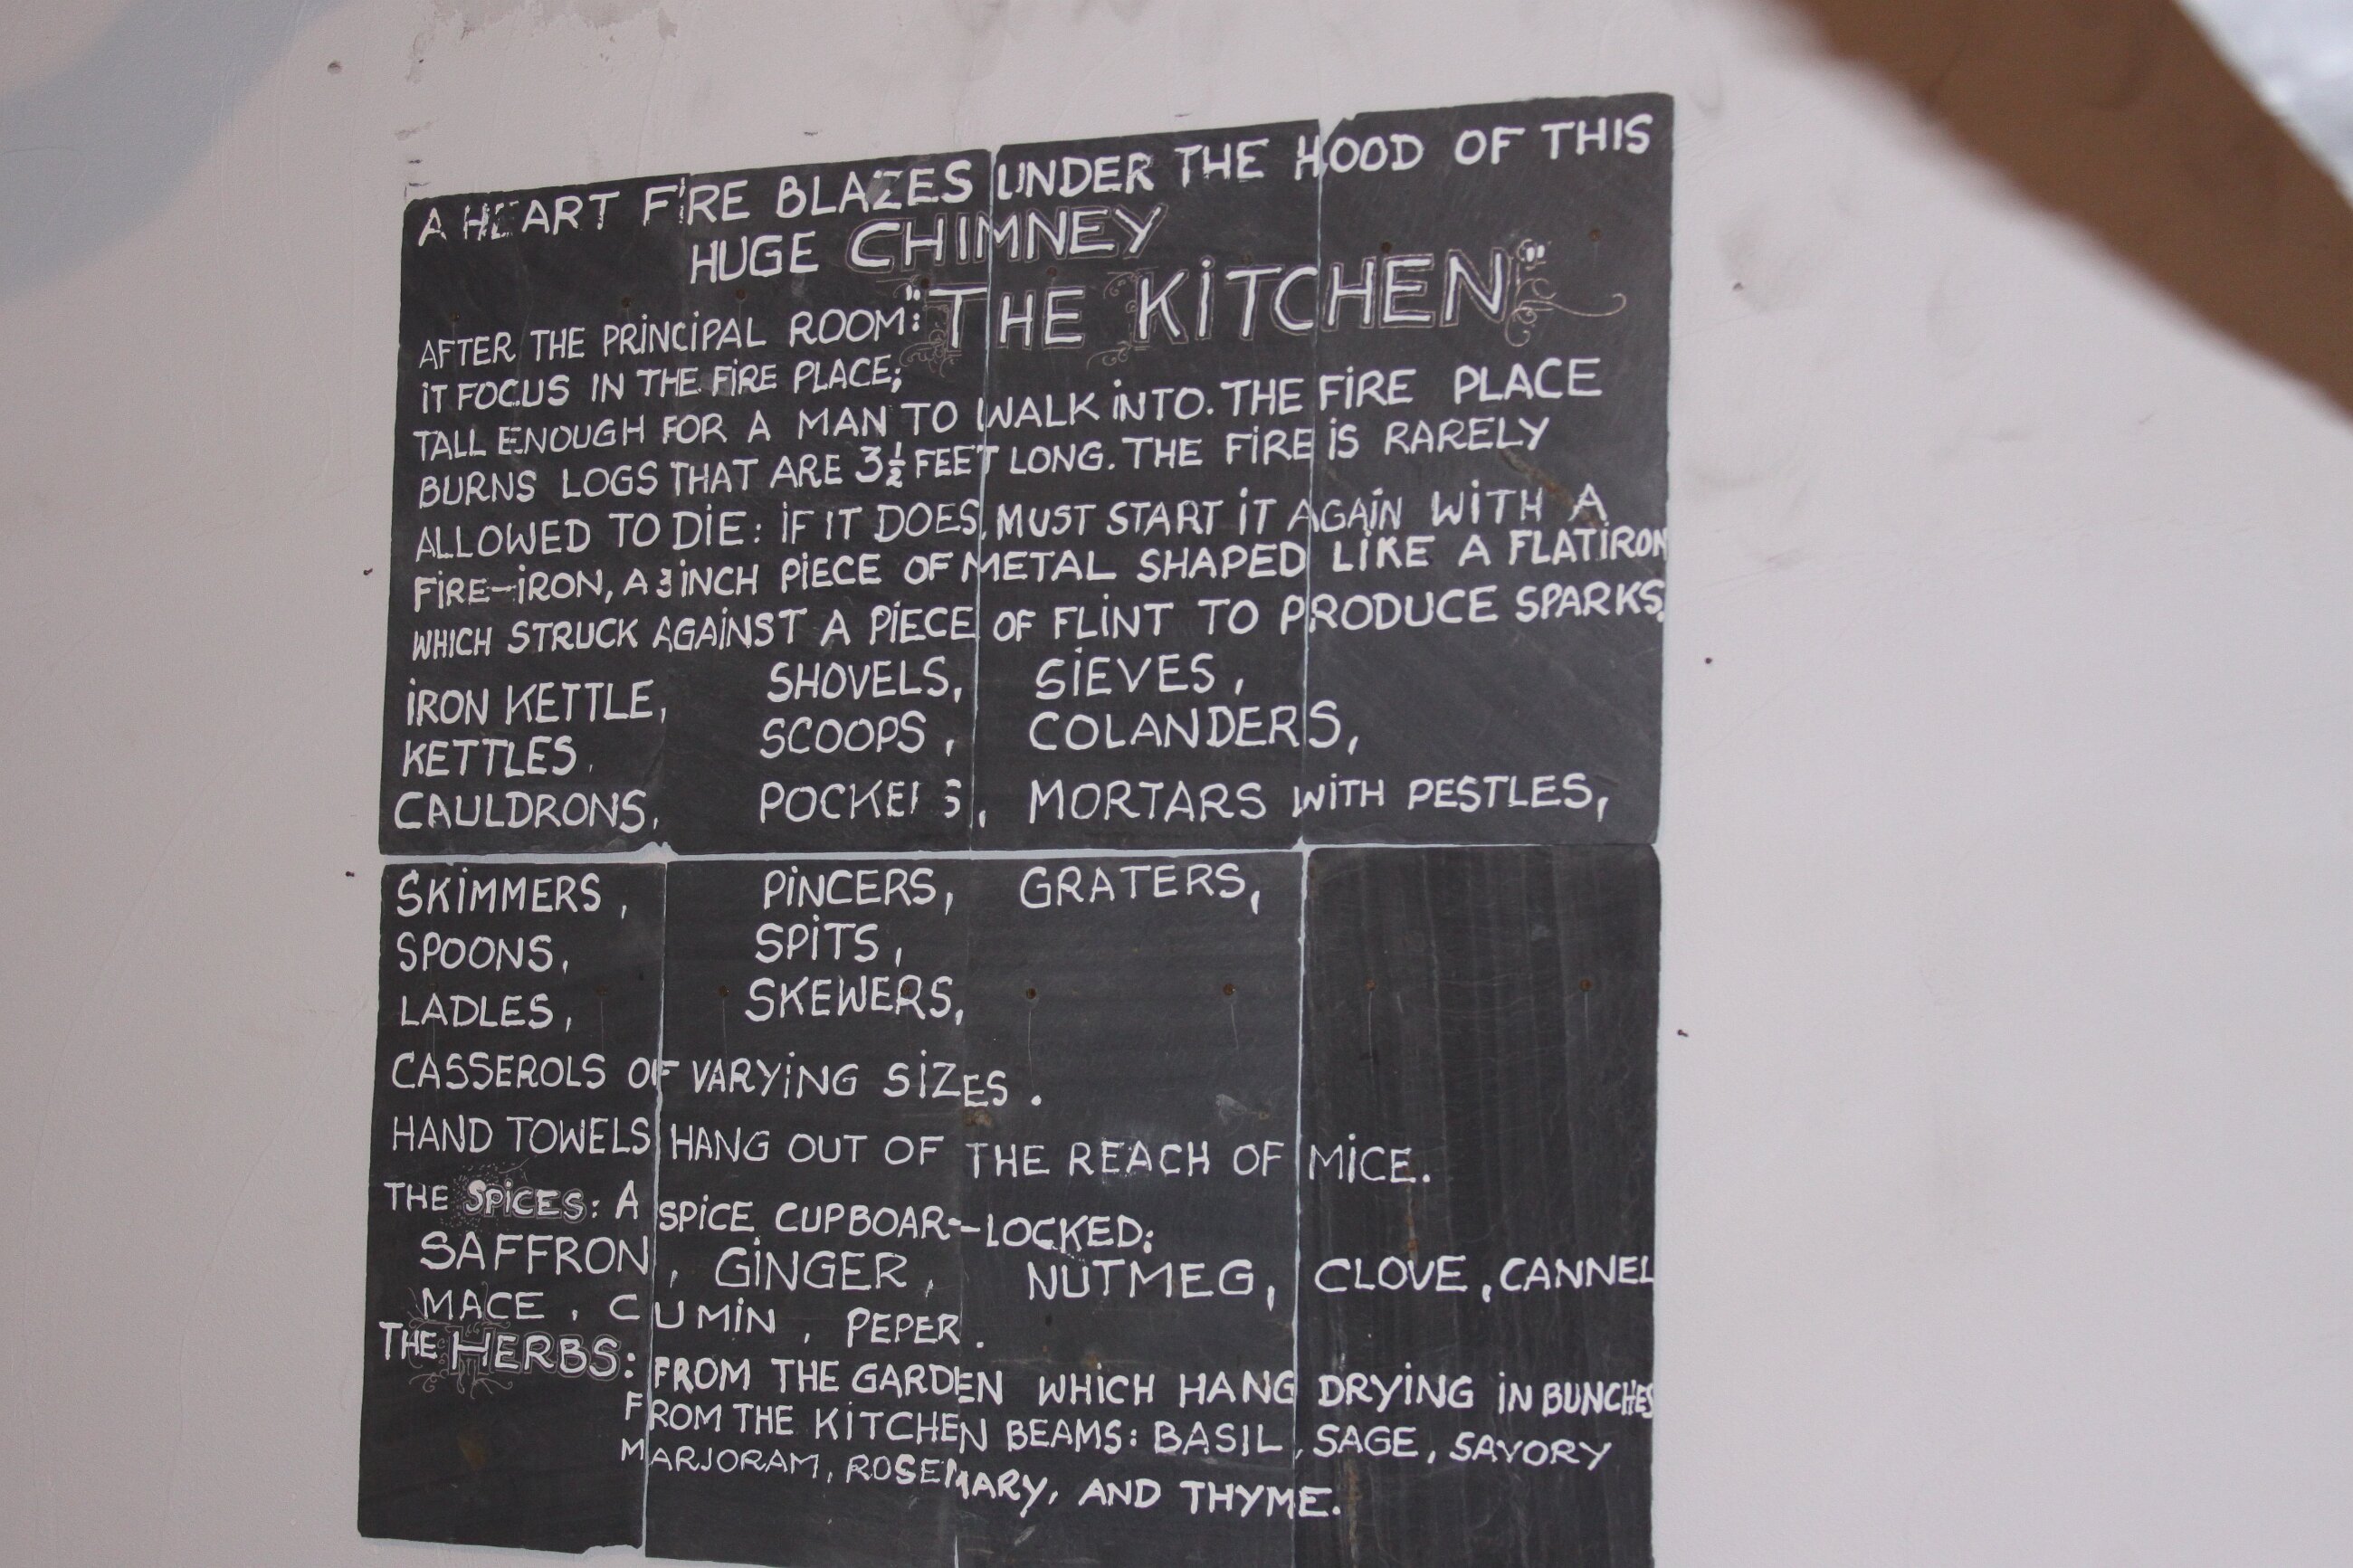 A HEART FIRE BLAZES UNDER THE HOOD OF THIS
HUGE CHIMNEY
AFTER THE PRINCIPAL ROOM: "THE KITCHEN"
IT FOCUS IN THE FIRE PLACE;
TALL ENOUGH FOR A MAN TO WALK INTO. THE FIRE PLACE
BURNS LOGS THAT ARE 3½ FEET LONG. THE FIRE IS RARELY
ALLOWED TO DIE: IF IT DOES, MUST START IT AGAIN WITH A
FIRE-IRON, A 3 INCH PIECE OF METAL SHAPED LIKE A FLATIRON
WHICH STRUCK AGAINST A PIECE OF FLINT TO PRODUCE SPARKS.
IRON KETTLE, SHOVELS, SIEVES,
KETTLES, SCOOPS, COLANDERS,
CAULDRONS, POCKETS, MORTARS WITH PESTLES,
SKIMMERS, PINCERS, GRATERS,
SPOONS, SPITS,
LADLES, SKEWERS,
CASSEROLS OF VARYING SIZES.
HAND TOWELS HANG OUT OF THE REACH OF MICE.
THE SPICES: A SPICE CUPBOAR--LOCKED:
SAFFRON, GINGER, NUTMEG, CLOVE, CANNEL
MACE, CUMIN, PEPER.
THE HERBS: FROM THE GARDEN WHICH HANG DRYING IN BUNCHES
FROM THE KITCHEN BEAMS: BASIL, SAGE, SAVORY
MARJORAM, ROSEMARY, AND THYME.